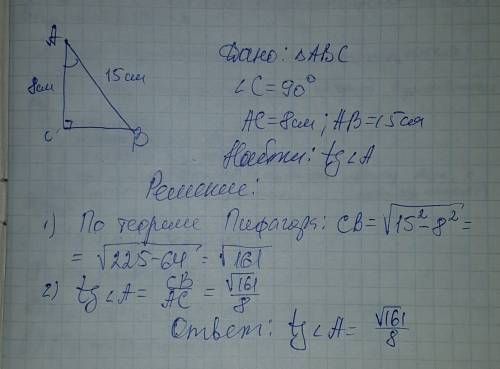 A
8см
15см
C
B
Дано: △ABC
∠C = 90°
AC = 8см ; AB = 15см
Найти: tg∠A
Решение:
1) По теореме Пифагора: CB = √15² - 8² =
= √225 - 64 = √161
2) tg∠A = CB/AC = √161/8
Ответ: tg∠A = √161/8